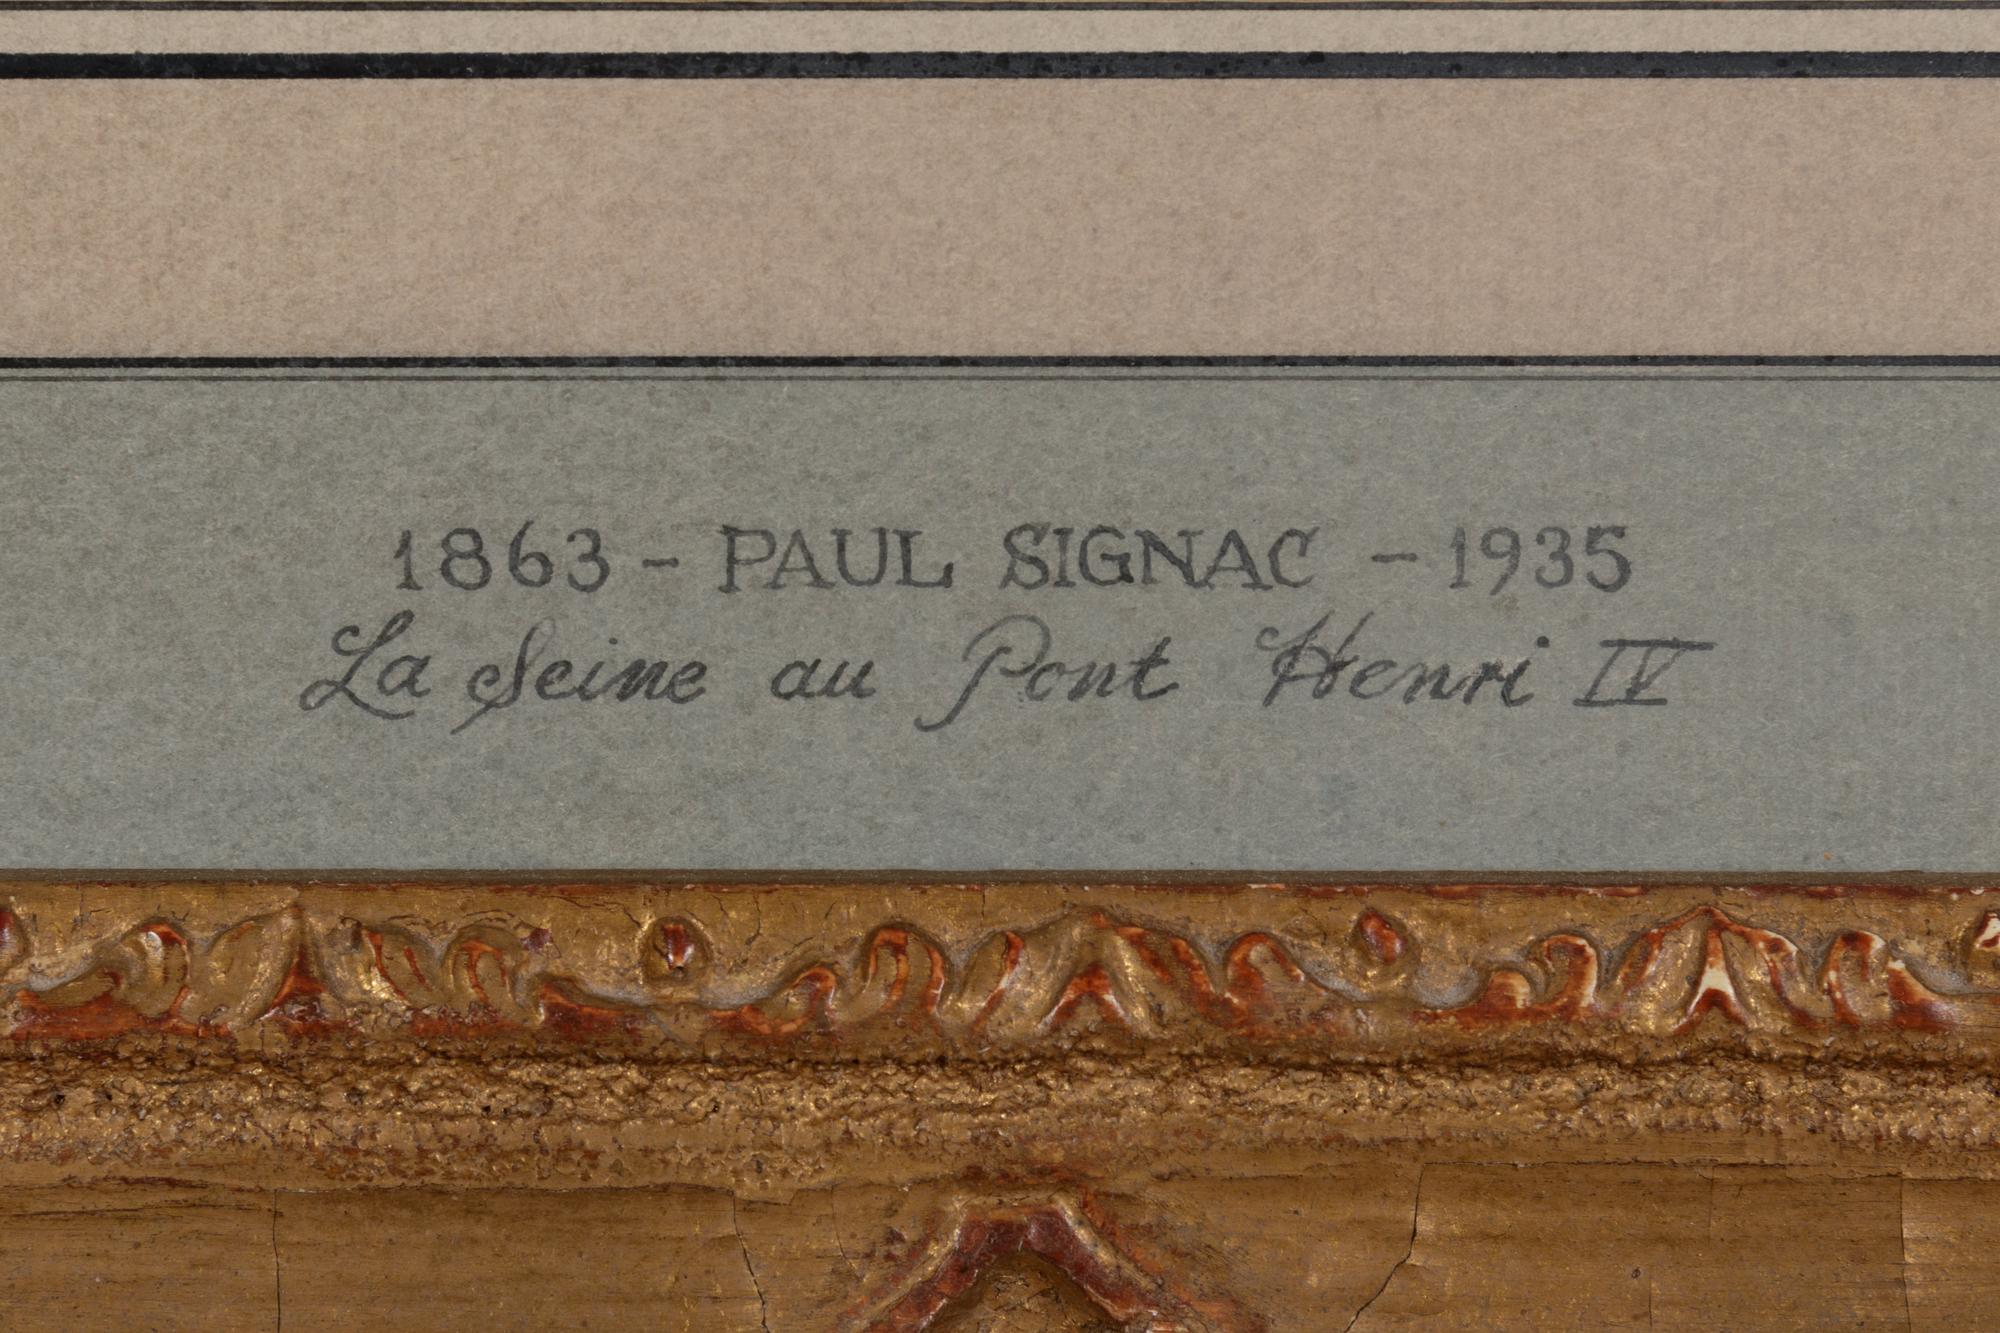 1863 - PAUL SIGNAC - 1935
La Seine au Pont Henri IV